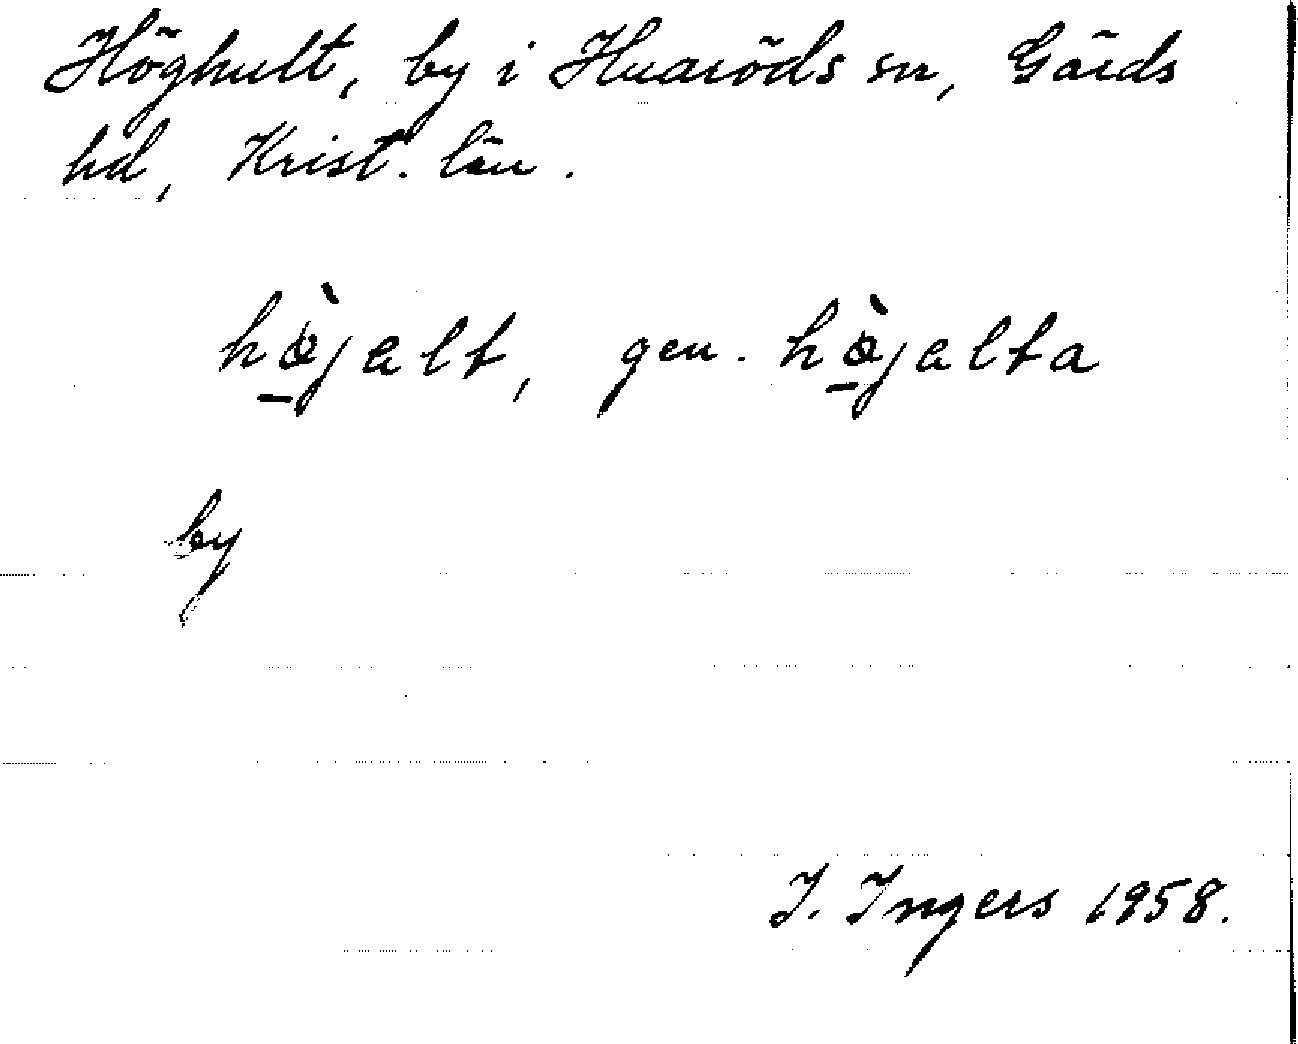 Höghult, by i Huaröds sn, Gärds
hd, Krist. län.
hø̀jalt, gen. hø̀jalta
by
I. Ingers 1958.